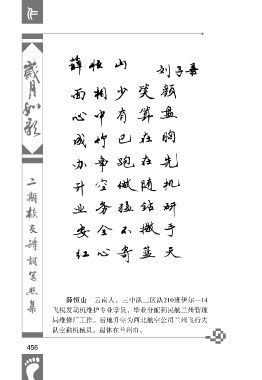 薛恒山
刘子善
面相少笑颜
心中有算盘
成竹已在胸
办事跑在先
升空做随机
业务猛钻研
安全不撒手
红心寄蓝天
岁月如歌
二期校友诗词写照集
薛恒山　云南人，三中队二区队210班伊尔—14
飞机发动机维护专业学员，毕业分配到民航兰州管理
局维修厂工作。后地升空为西北航空公司兰州飞行大
队空勤机械员。退休在兰州市。
456